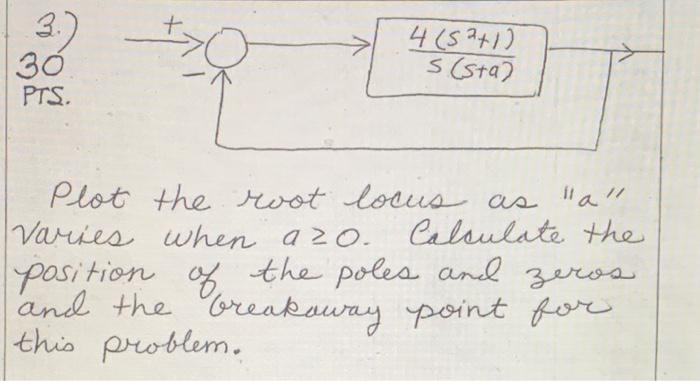 3.)
30
PTS.
+
−
4(s²+1)
s(s+a)
Plot the root locus as "a"
varies when a≥0. Calculate the
position of the poles and zeros
and the breakaway point for
this problem.